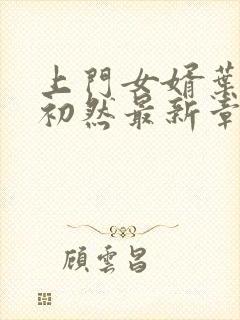 上門女婿葉
初然最新章
顧雲昌